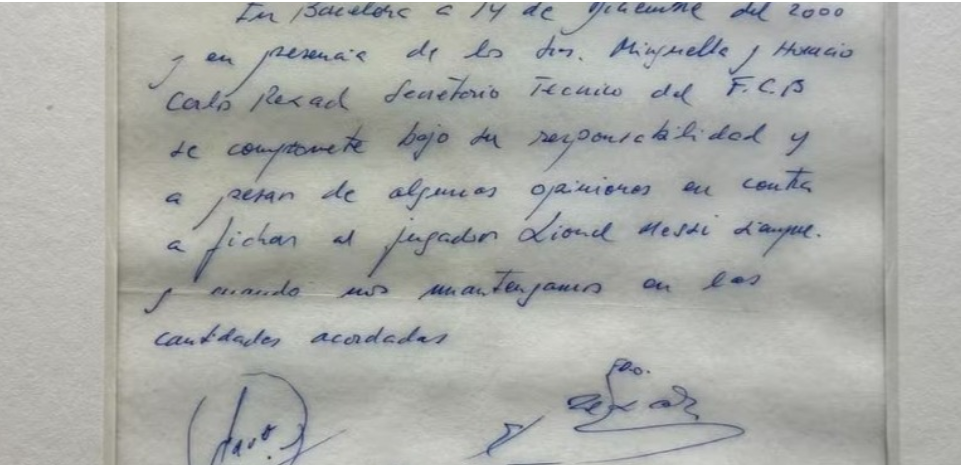 En Barcelona a 14 de Diciembre del 2000
y en presencia de los Srs. Minguella y Horacio
Carlos Rexach Secretario Tecnico del F.C.B
se compromete bajo su responsabilidad y
a pesar de algunas opiniones en contra
a fichar al jugador Lionel Messi siempre.
y cuando nos mantengamos en las
cantidades acordadas
Fdo.